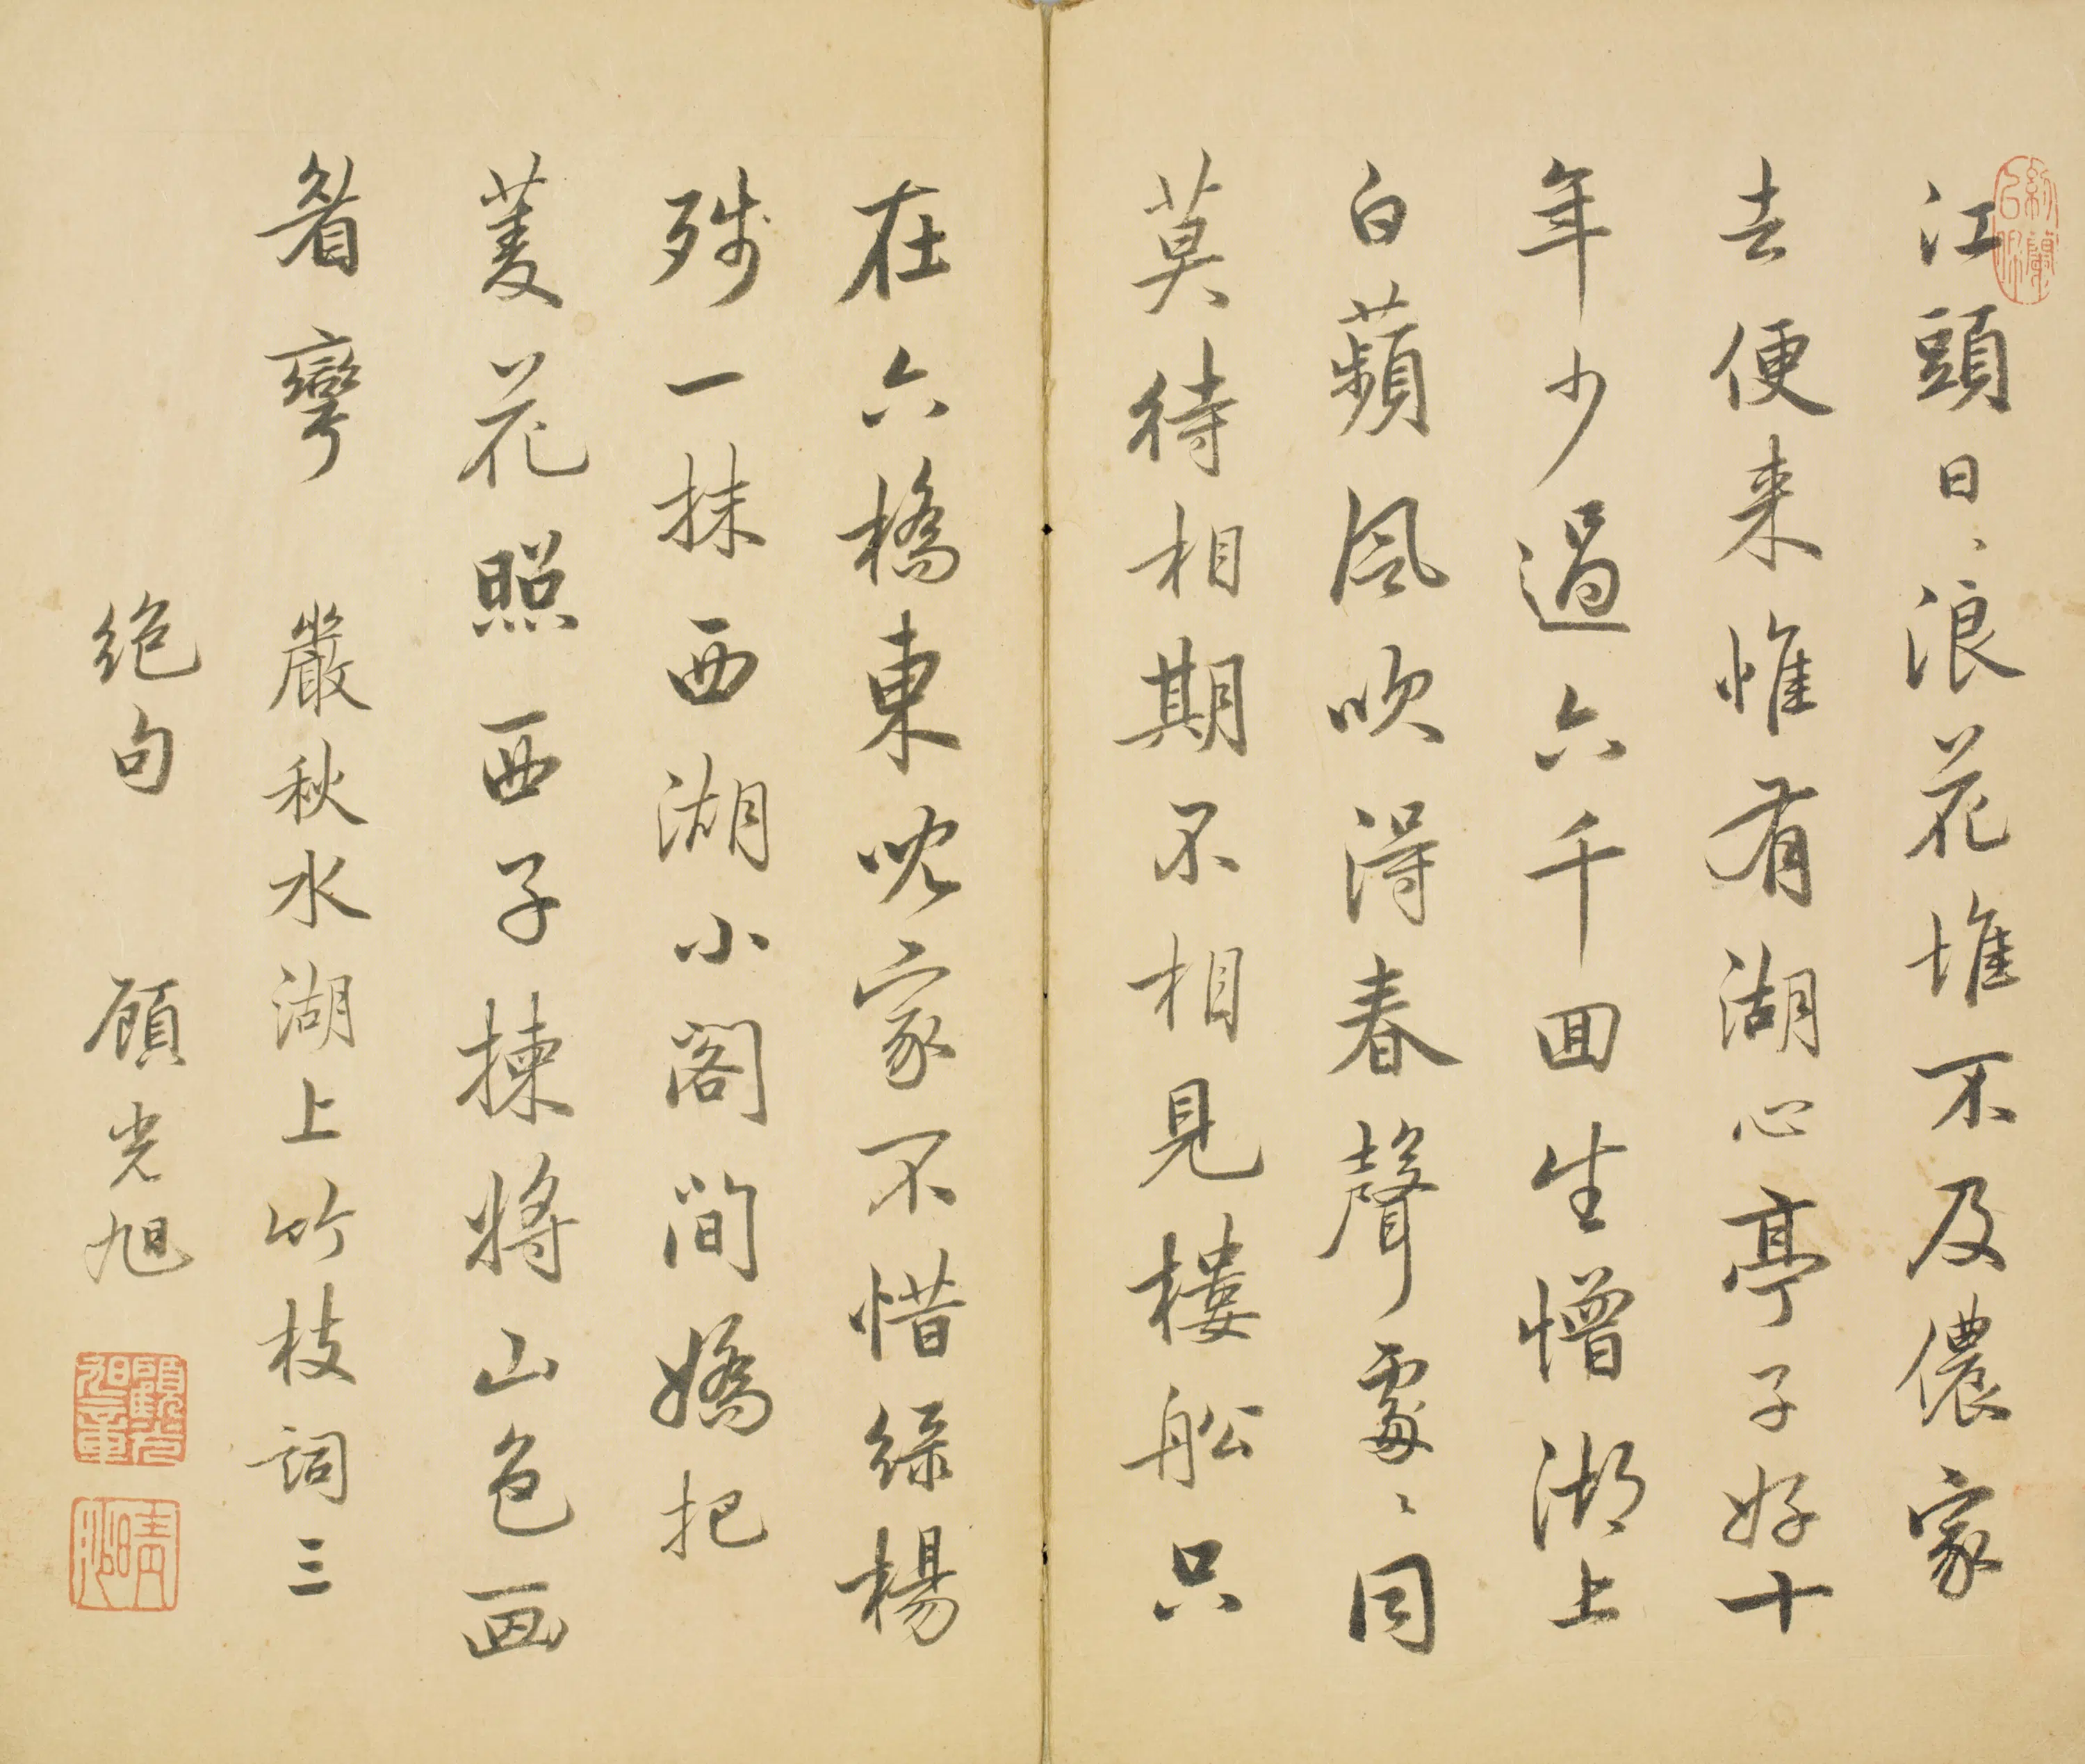 江頭日、浪花堆不及儂家
去便来惟有湖心亭子好十
年少過六千囬生憎湖上
白蘋風吹得春聲處、同
莫待相期不相見樓船只
在六橋東兒家不惜綠楊
殘一抹西湖小閣間嬌把
菱花照西子揀將山色画
眉彎 嚴秋水湖上竹枝詞三
絕句 顧光旭
晴沙